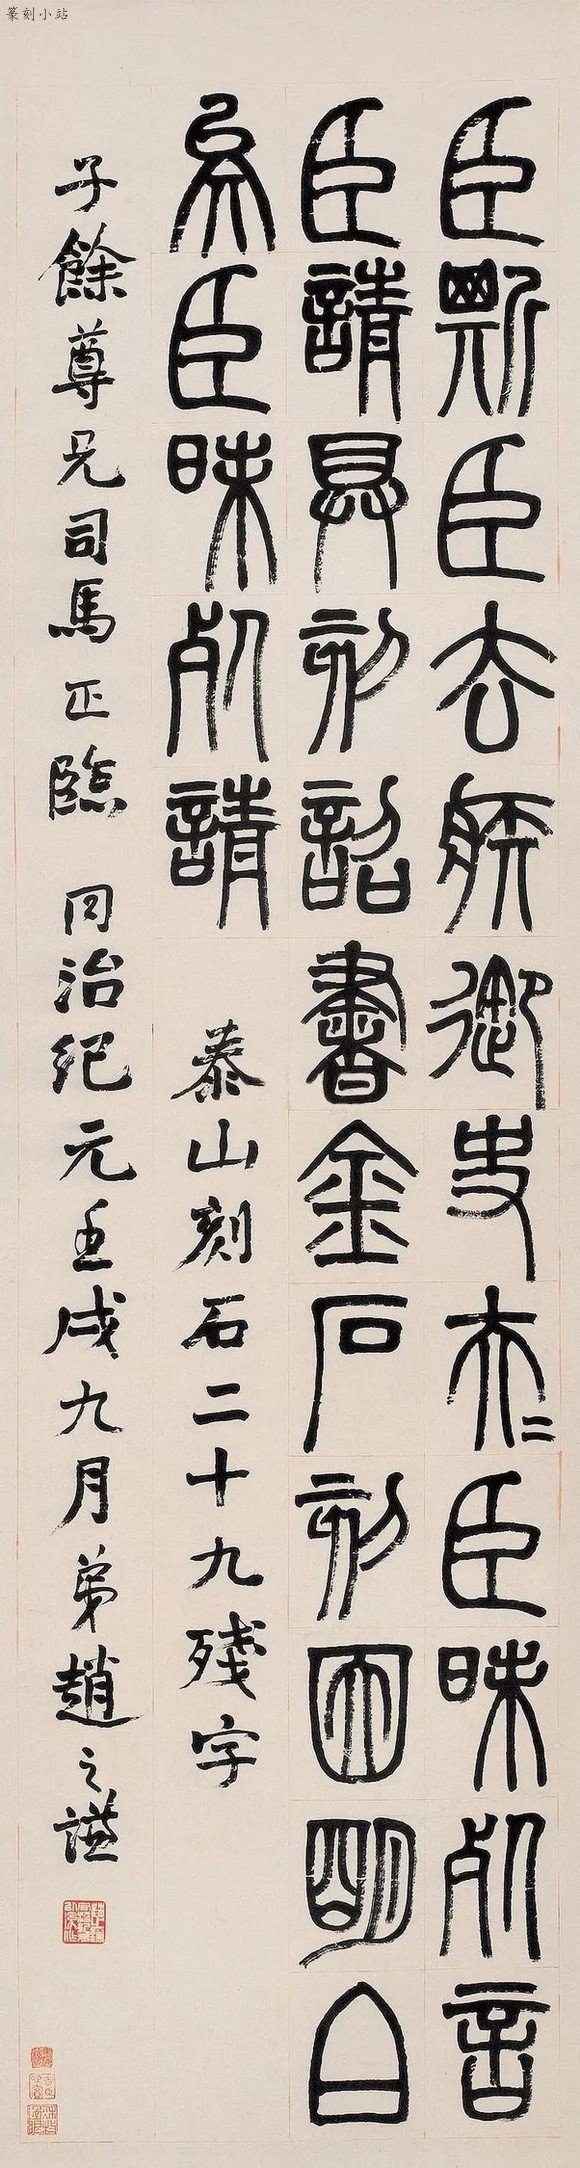 篆刻小站
臣斯臣去疾御史夫=臣昧死言
臣請具刻詔書金石刻因明白
矣臣昧死請
泰山刻石二十九殘字
子餘尊兄司馬正臨 同治紀元壬戌九月弟趙之謙